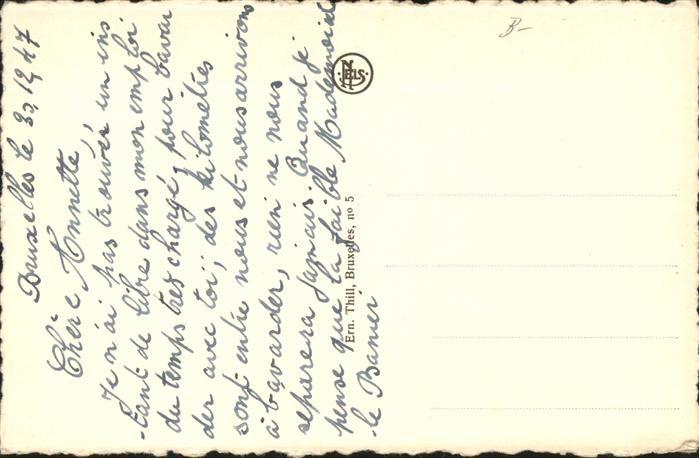 Bruxelles le 30.12.47
Chère Annette,
Je n'ai pas trouvé, un ins
-tant de libre dans mon emploi
du temps très chargé, pour bavar
der avec toi, des kilomètres
sont entre nous et nous arrivons
à bavarder, rien ne nous
séparera jamais. Quand je
pense que ta faible Mademoiselle
le
Ern. Thill, Bruxelles, no 5
NELS
B-